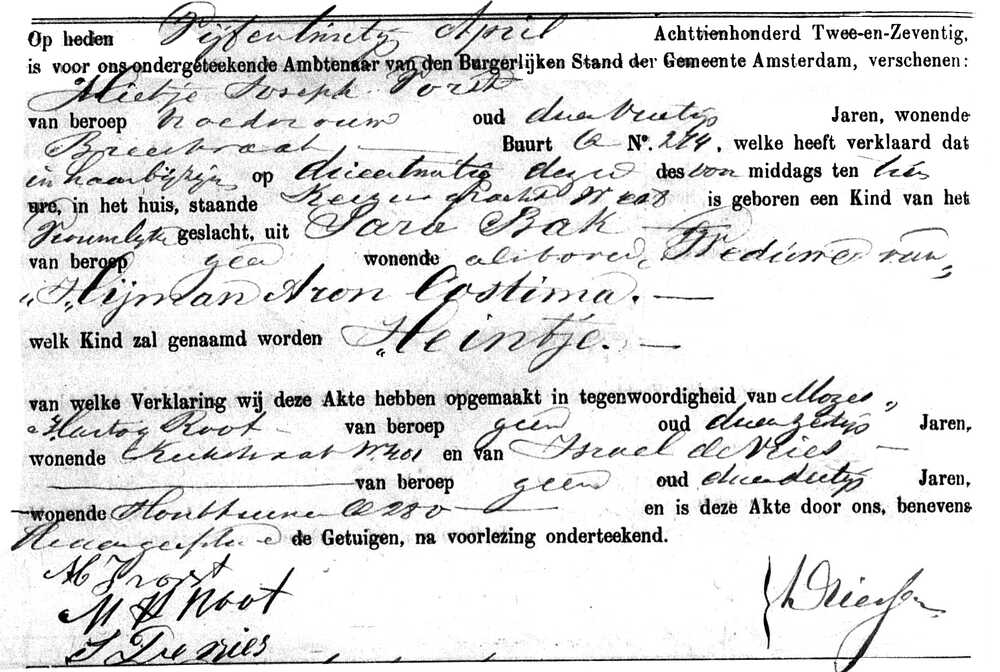 Op heden Vijfentwintig April Achttienhonderd Twee-en-Zeventig,
is voor ons ondergeteekende Ambtenaar van den Burgerlijken Stand der Gemeente Amsterdam, verschenen:
Mietje Joseph
van beroep Vroedvrouw oud Jaren, wonende
Breestraat Buurt Q No. 274, welke heeft verklaard dat
in haar bijzijn op drieentwintig dezer des voor middags ten
ure, in het huis, staande Keizersgracht is geboren een Kind van het
Vrouwelijk geslacht, uit Sara Bak
van beroep geen wonende aldaar, Weduwe van
Hijman Aron Costima.
welk Kind zal genaamd worden Heintje.
van welke Verklaring wij deze Akte hebben opgemaakt in tegenwoordigheid van Mozes
Hartog Root van beroep geen oud Jaren,
wonende Kerkstraat en van Israel de Vries
van beroep geen oud Jaren,
wonende Houttuinen Q 280 en is deze Akte door ons, benevens
de Getuigen, na voorlezing onderteekend.
M H Root